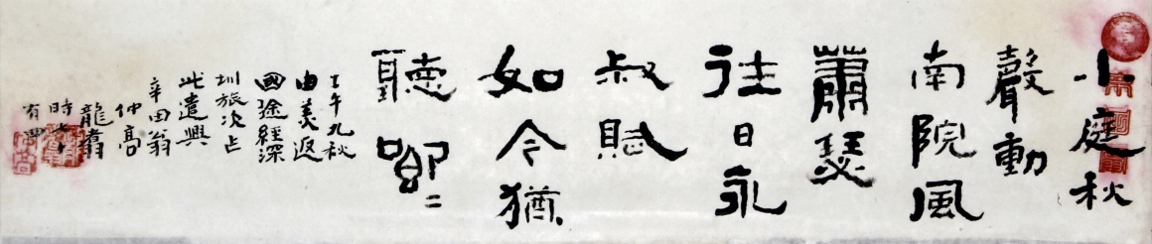 小庭秋
聲動
南院風
蕭瑟
往日永
叔賦
如今猶
聽唧〻
壬午九秋
由美返
國途經深
圳旅次占
此遣興
辛田翁
仲高
龍翥
時七十
有